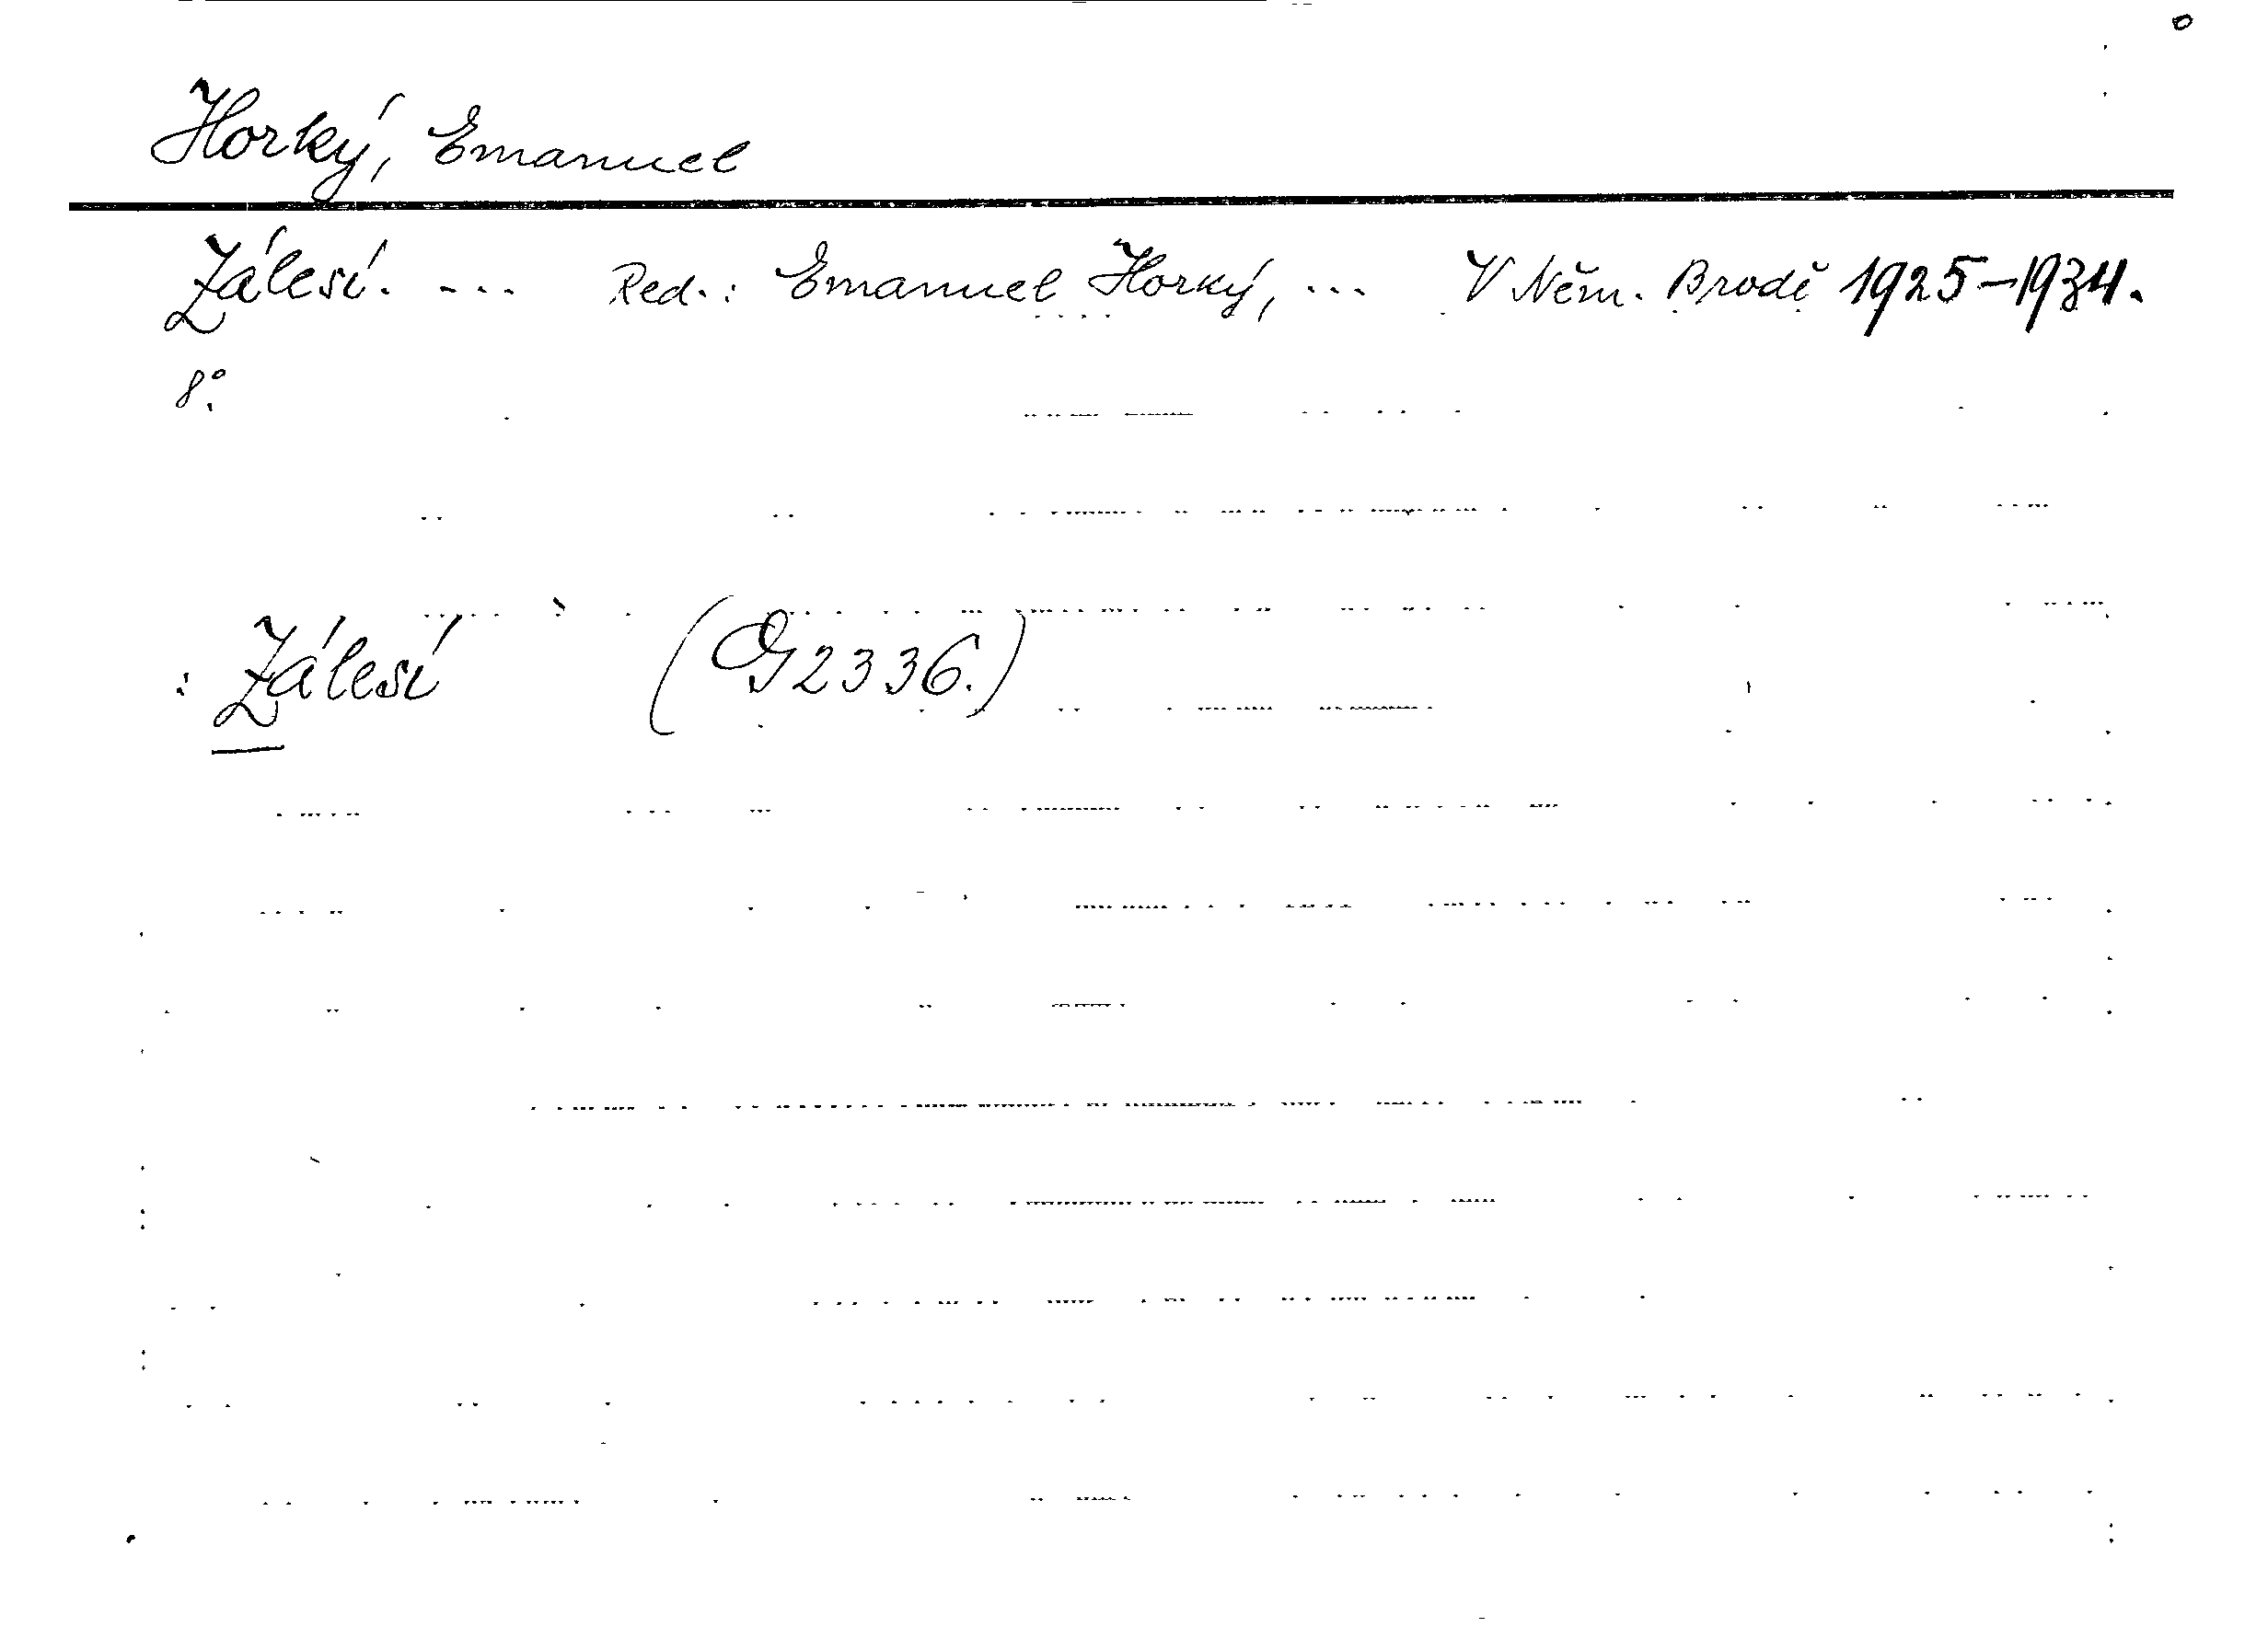 Horký, Emanuel
Zálesí. --- Red.: Emanuel Horký, ... V Něm. Brodě 1925-1934.
8°.
: Zálesí (G 2336.)